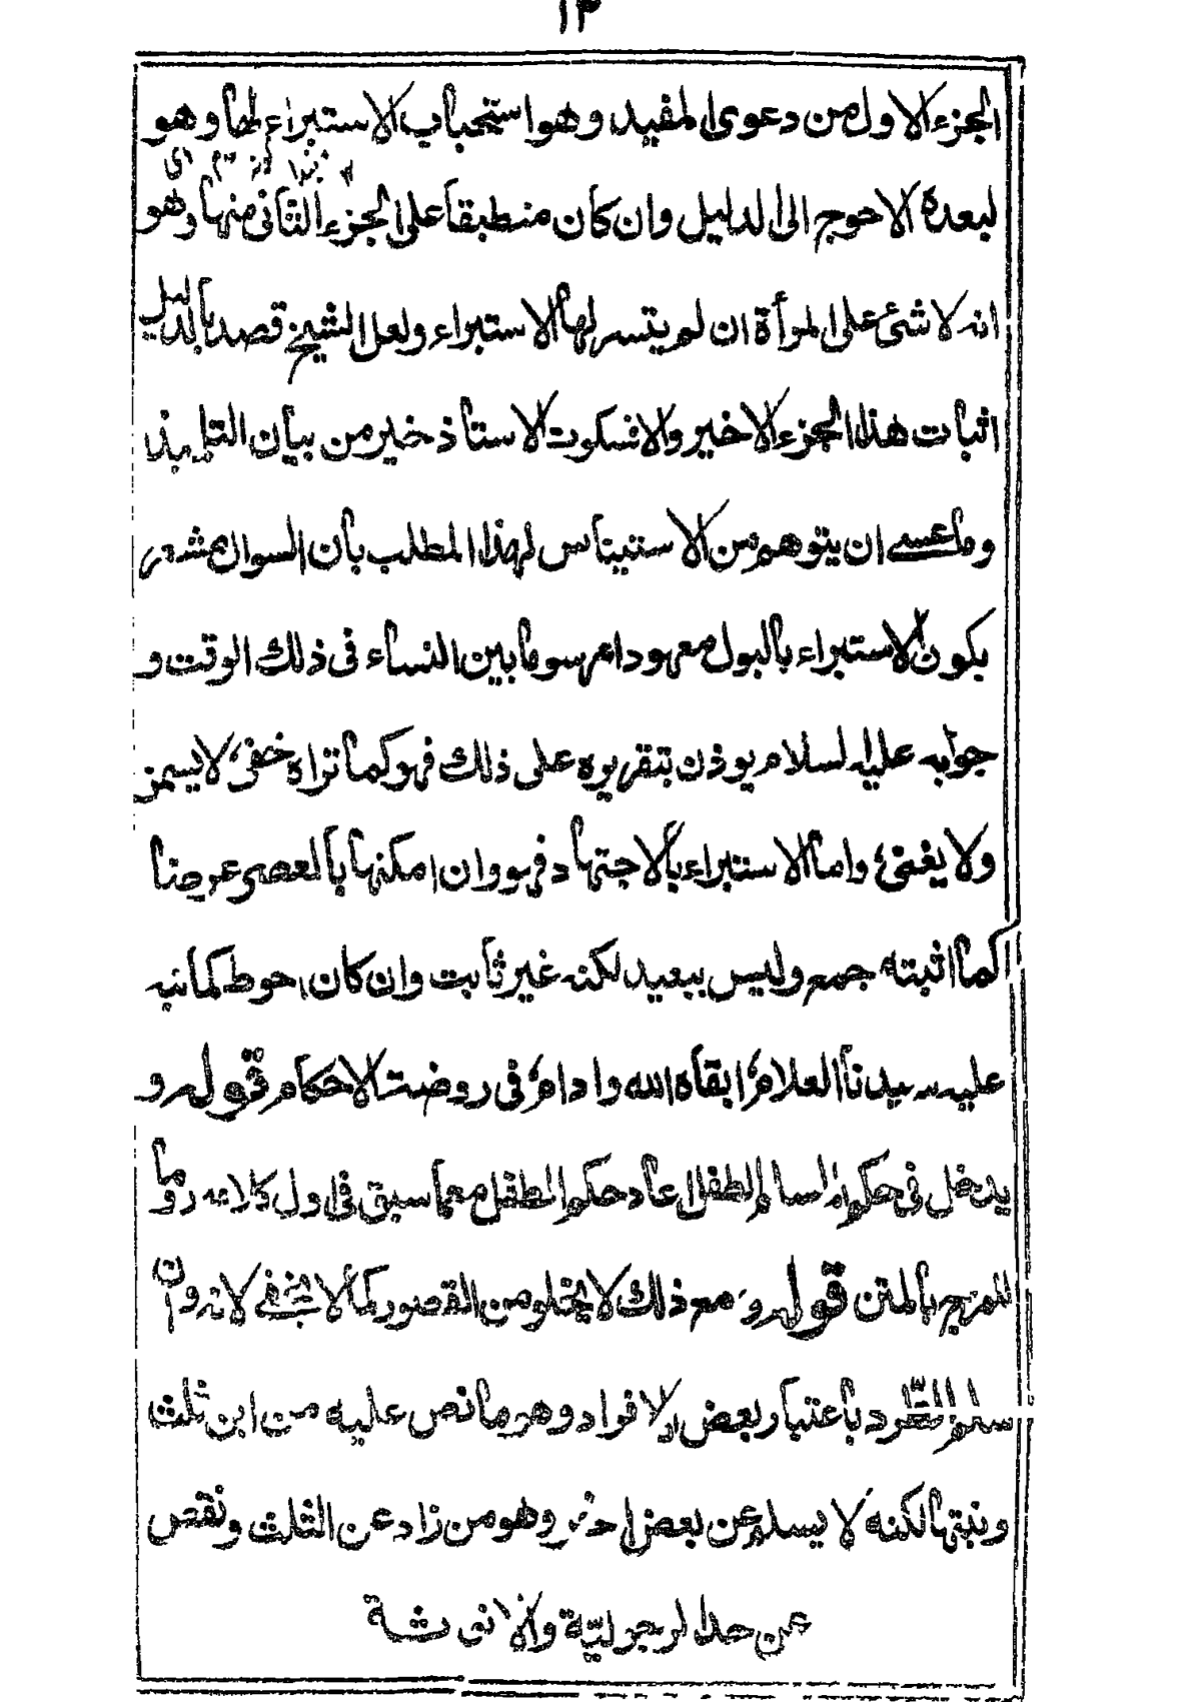 ١٣
الجزء الاول من دعوى المفيد وهو استحباب الاستبراء لها وهو
لبعده الاحوج الى الدليل وان كان منطبقا على الجزء الثانى منها وهو
انه لا شئ على المرأة ان لم يتسر لها الاستبراء ولعل الشيخ قصد بالدليل
اثبات هذا الجزء الاخير والا فسكوت الاستاذ خير من بيان التلميذ
وما عسى ان يتوهم من الاستيناس لهذا المطلب بان السوال مشعر
بكون الاستبراء بالبول معهودا مرسوما بين النساء فى ذلك الوقت و
جوابه عليه السلام يوذن بتقريره على ذلك فهو كما تراه خفى لا يسمن
ولا يغنى واما الاستبراء بالاجتهاد فهو وان امكنها بالعصر عرضا
كما اثبته جمع وليس ببعيد لكنه غير ثابت وان كان احوط كما نبه
عليه سيدنا العلامة ابقاه الله وادامه فى روضة الاحكام قوله و
يدخل فى حكم المسلم الطفل اعاد حكم الطفل مع ما سبق فى اول كلامه روما
للمزج بالمتن قوله و مع ذلك لا يخلو من القصور كما لا يخفى لانه وان
سلم الطرد باعتبار بعض الافراد وهو ما نص عليه من ابن ثلث
وبنتها لكنه لا يسلم عن بعض اخر وهو من زاد عن الثلث ونقص
عن حد الرجولية والانوثة